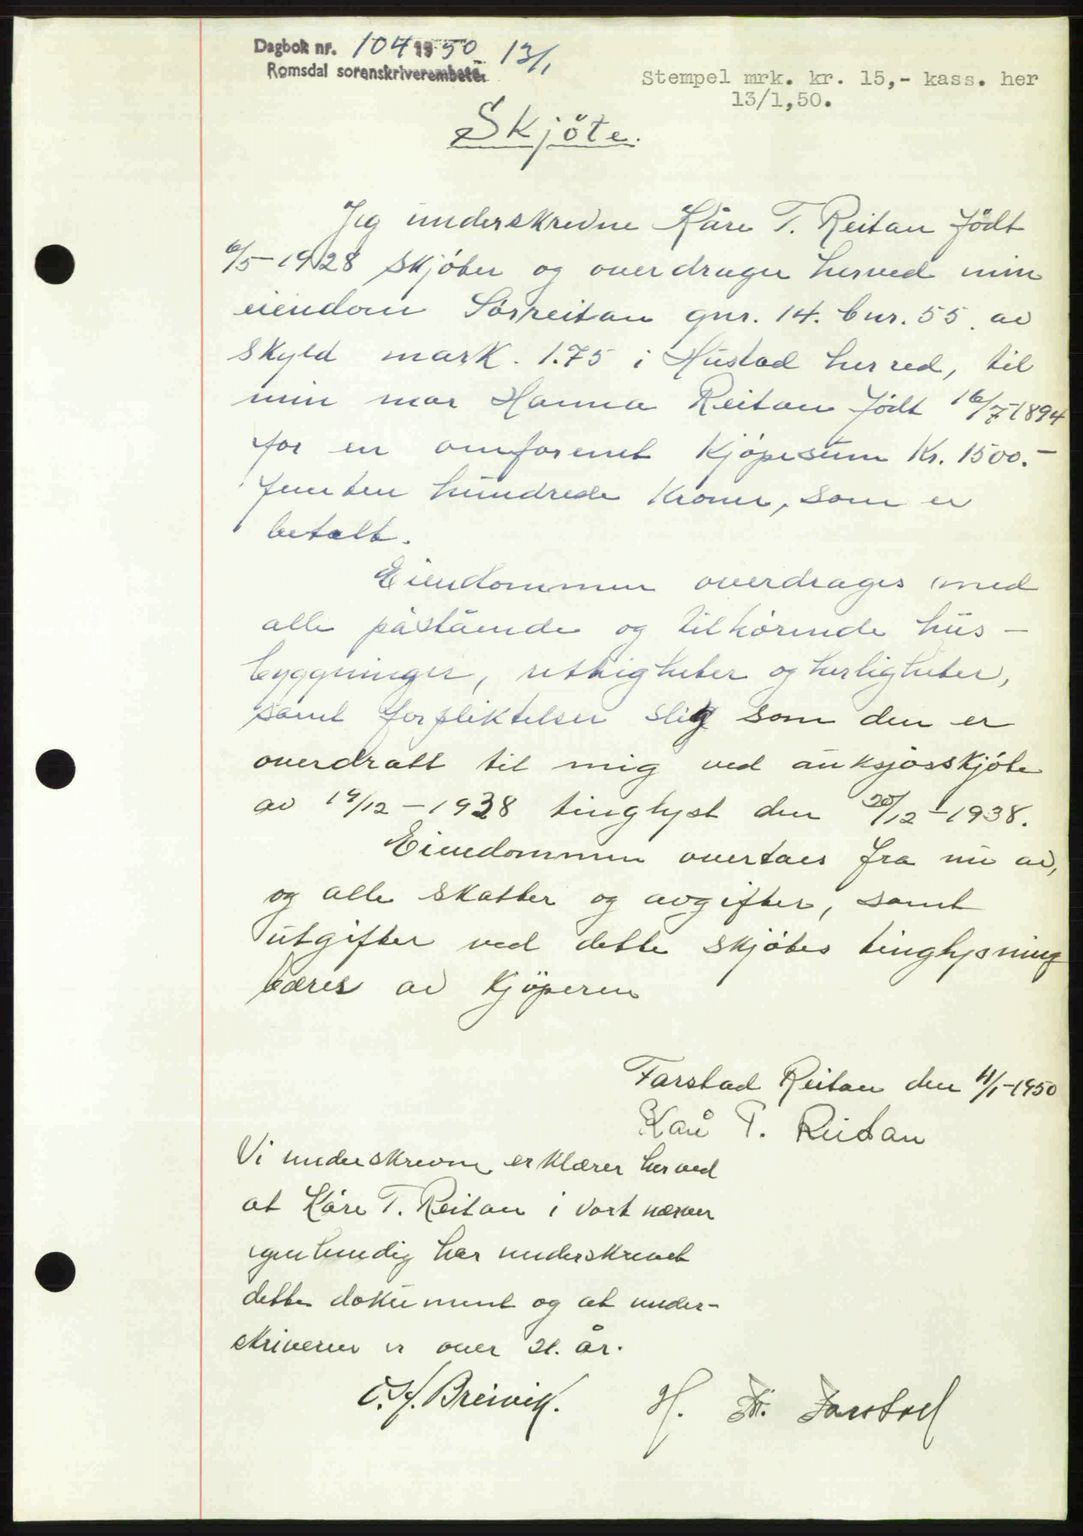 Dagbok nr. 104 1950 13/1
Romsdal sorenskriverembete.
Stempel mrk. kr. 15,- kass. her
13/1,50.
Skjöte.
Jeg underskrevne Kåre T. Reitan født
6/5-1928 skjöter og overdrager herved min
eiendom Sörreitan gnr. 14. bnr. 55. av
skyld mark. 1.75 i Hustad herred, til
min mor Hanna Reitan født 16/7-1894
for en omforenet kjöpesum Kr. 1500.-
femten hundrede kroner, som er
betalt.
Eiendommen overdrages med
alle påstående og tilhörende hus-
byggninger, rettigheter og herligheter,
samt forpliktelser slig som den er
overdratt til mig ved auksjosskjöte
av 19/12-1938 tinglyst den 20/12-1938.
Eiendommen overtaes fra nu av,
og alle skatter og avgifter, samt
utgifter ved dette skjötes tinglysning
bæres av kjöperen
Farstad Reitan den 11/1-1950
Kåre T. Reitan
Vi underskrevne erklærer herved
at Kåre T. Reitan i vort nærvær
egenhendig har underskrevet
dette dokument og at under-
skriveren er over 21. år.
O. H. Breivik. H. Kr. Farstad